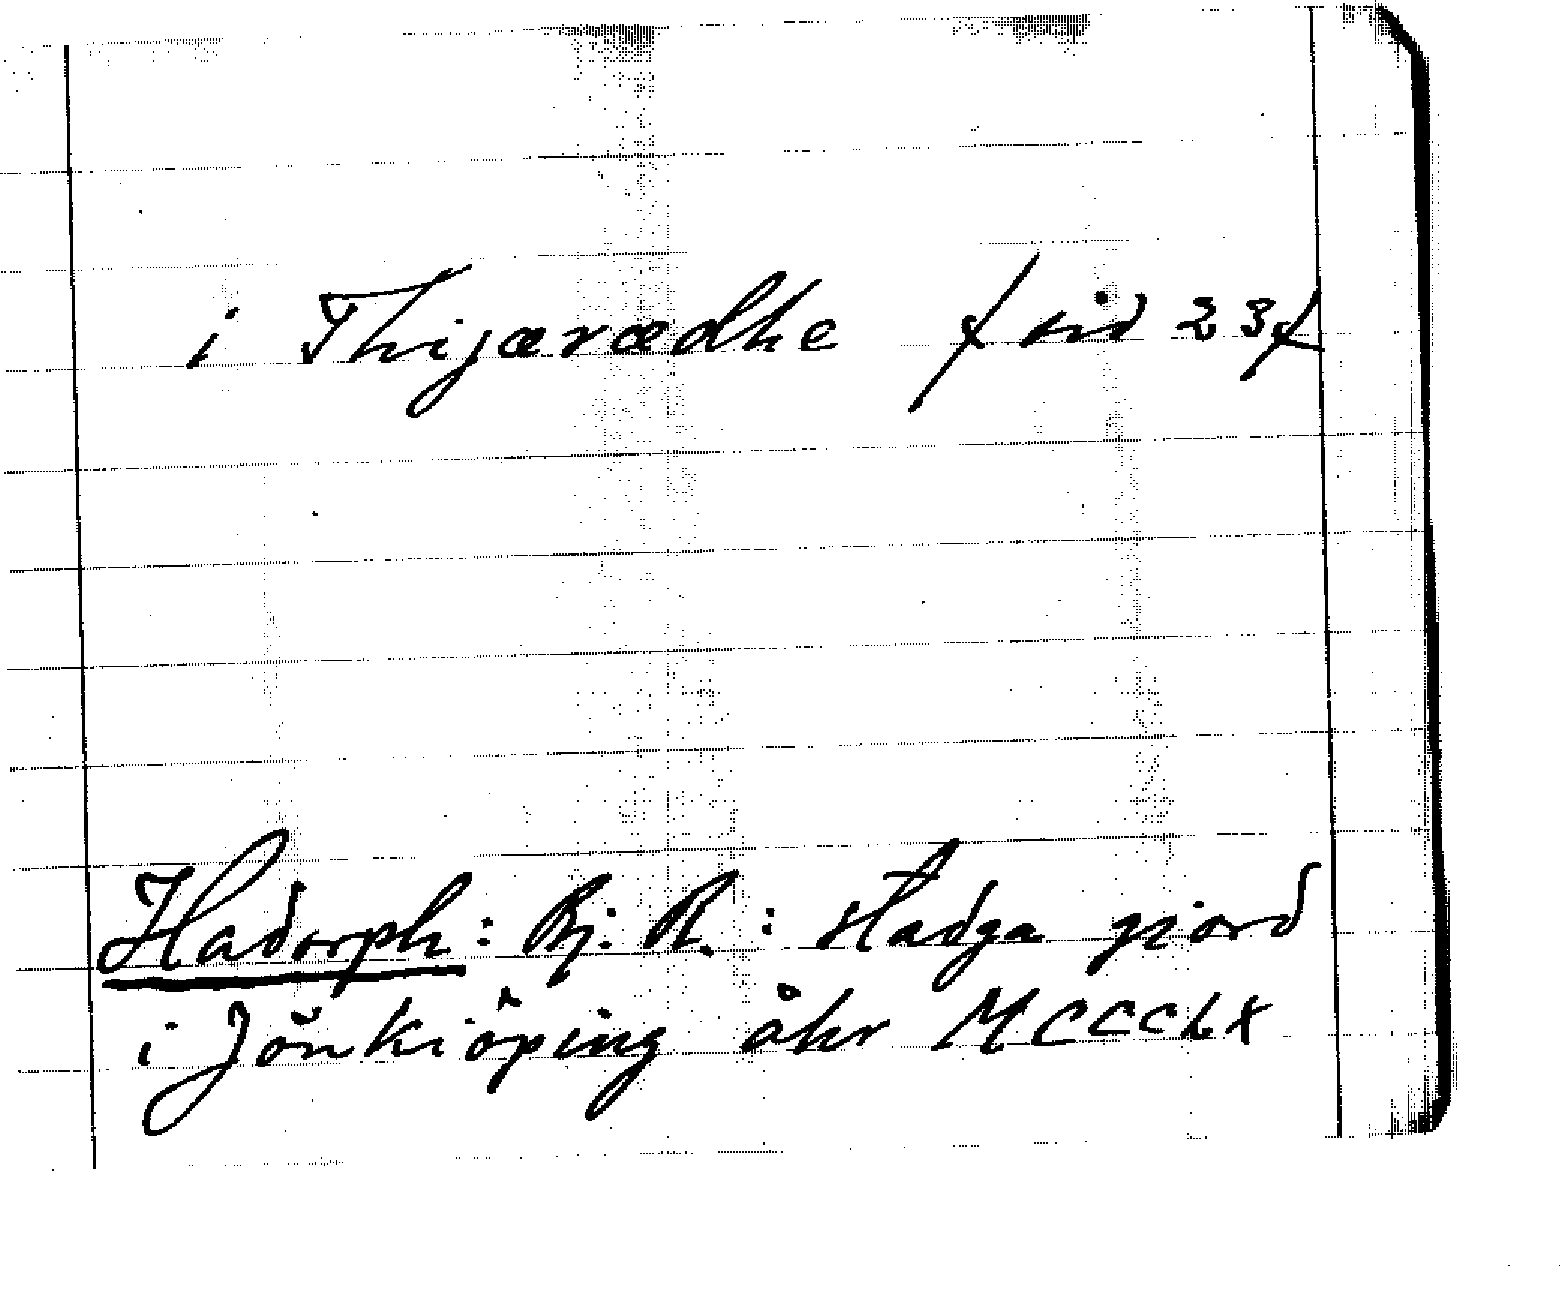 i Thijærædhe / sid 23 /
Hadorph: Bj. R.: Stadga gjord
i Jönkiöping åhr MCCCLX